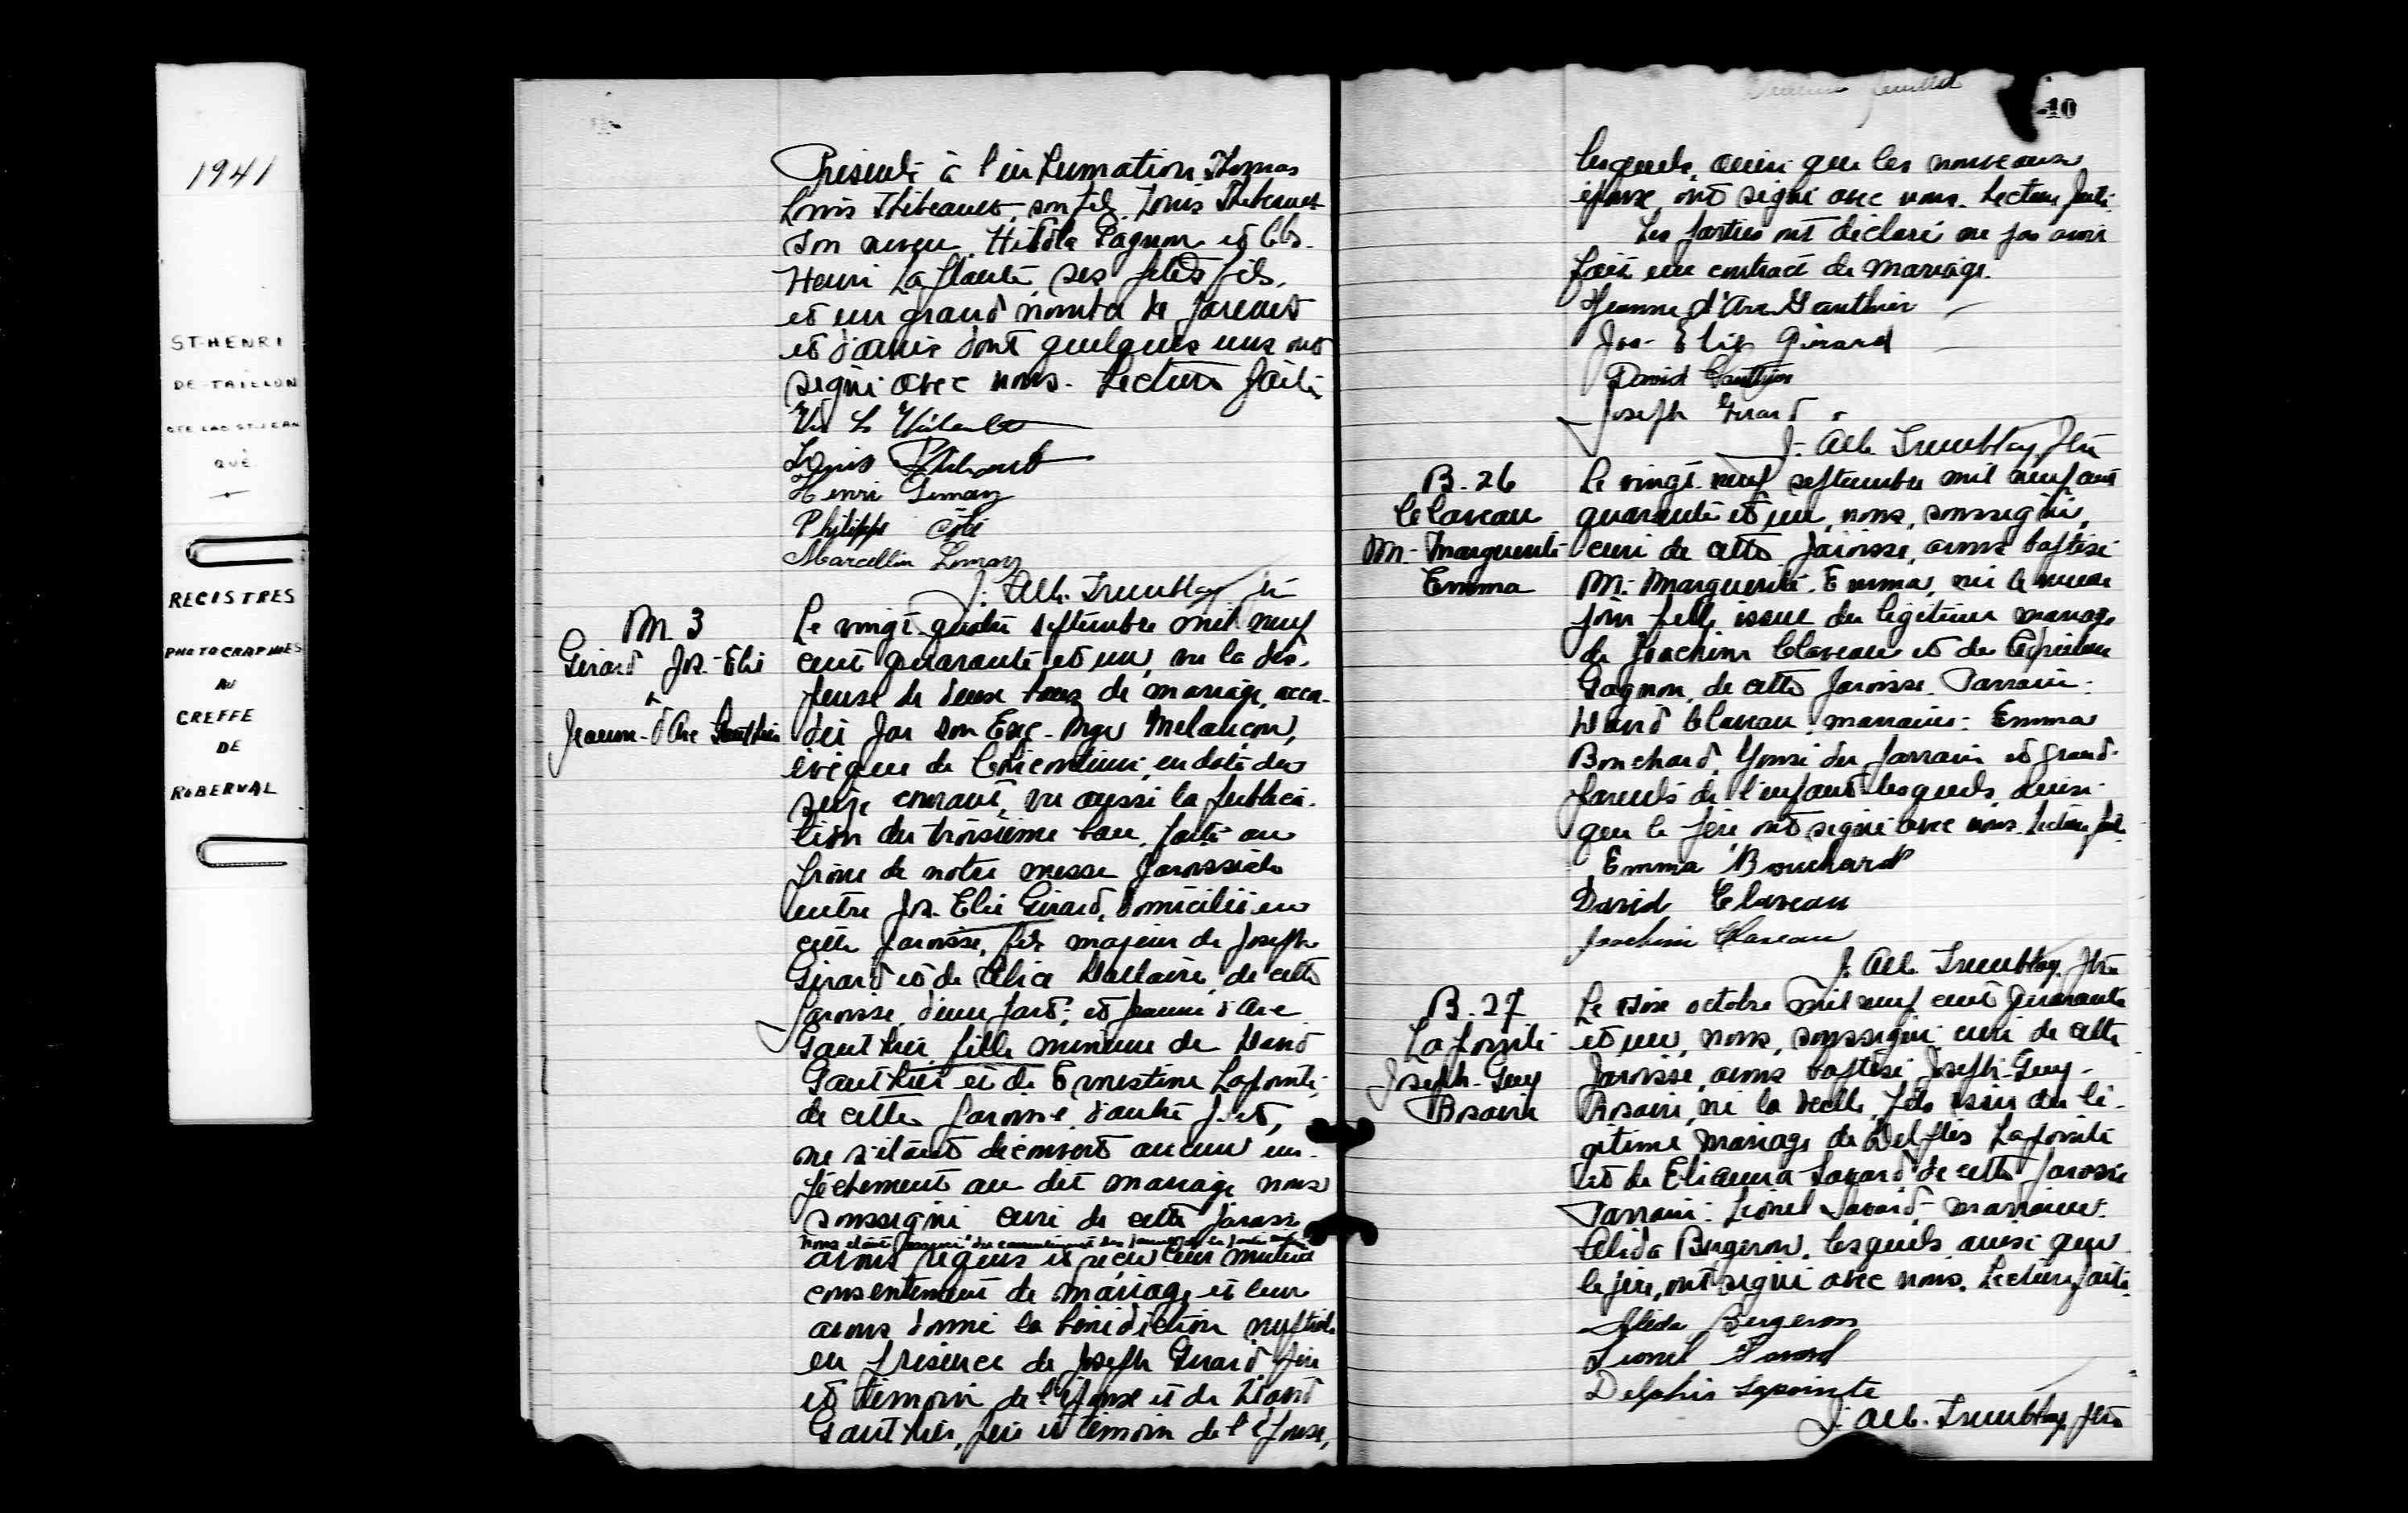 1941
ST-HENRI
DE-TAILLON
CTE LAC ST-JEAN
QUÉ.
REGISTRES
PHOTOGRAPHIÉS
AU
GREFFE
DE
ROBERVAL
Présents à l'inhumation Thomas
Louis Thibeault, son fils, Louis Thibeault
son neveu, Gagnon et
Henri Laplante, ses petits fils,
et un grand nombre de parents
et d'amis dont quelques uns ont
signé avec nous. Lecture faite
Louis Thibeault
Henri Lemay
Philippe Côté
Marcellin Lemay
J. Alb. Tremblay, ptre
M. 3
Girard Jos.-Elie
&
Jeanne-d'Arc Gauthier
Le vingt-quatre septembre mil neuf
cent quarante et un, vu la dis-
pense de deux bans de mariage, accor-
dée par Son Exc. Mgr Melançon,
évêque de Chicoutimi, en date du
seize courant, vu aussi la publica-
tion du troisième ban, faite au
prône de notre messe paroissiale
entre Jos. Elie Girard, domicilié en
cette paroisse, fils majeur de Joseph
Girard et de Alice Dallaire, de cette
paroisse, d'une part; et Jeanne d'Arc
Gauthier, fille mineure de David
Gauthier et de Ernestine Lapointe,
de cette paroisse, d'autre part,
ne s'étant découvert aucun em-
pêchement au dit mariage nous
soussigné curé de cette paroisse
nous étant assuré du consentement des
avons requis et reçu leur mutuel
consentement de mariage et leur
avons donné la bénédiction nuptiale
en présence de Joseph Girard père
et témoin de l'époux et de David
Gauthier, père et témoin de l'épouse,
feuillet
10
lesquels, ainsi que les nouveaux
époux, ont signé avec nous. Lecture faite.
Les parties ont déclaré ne pas avoir
fait un contrat de mariage.
Jeanne d'Arc Gauthier
Jos-Elie Girard
David Gauthier
Joseph Girard
J. Alb. Tremblay, ptre
B. 26
Claveau
M.-Marguerite
Emma
Le vingt-neuf septembre mil neuf cent
quarante et un, nous, soussigné,
curé de cette paroisse, avons baptisé
M. Marguerite-Emma, née le même
jour fille issue du légitime mariage
de Joachim Claveau et de
Gagnon, de cette paroisse. Parrain:
David Claveau, marraine: Emma
Bouchard, épouse du parrain et grand-
parents de l'enfant lesquels, ainsi
que le père ont signé avec nous. Lecture faite.
Emma Bouchard
David Claveau
Joachim Claveau
J. Alb. Tremblay, ptre
B. 27
Lapointe
Joseph-Guy
Rosaire
Le six octobre mil neuf cent quarante
et un, nous, soussigné curé de cette
paroisse, avons baptisé Joseph-Guy-
Rosaire, né la veille, fils issu du lé-
gitime mariage de Delphis Lapointe
et de Elianna Savard de cette paroisse
Parrain: Lionel Savard, marraine:
Alida Bergeron, lesquels ainsi que
le père, ont signé avec nous. Lecture faite.
Alida Bergeron
Lionel Savard
Delphis Lapointe
J. Alb. Tremblay, ptre